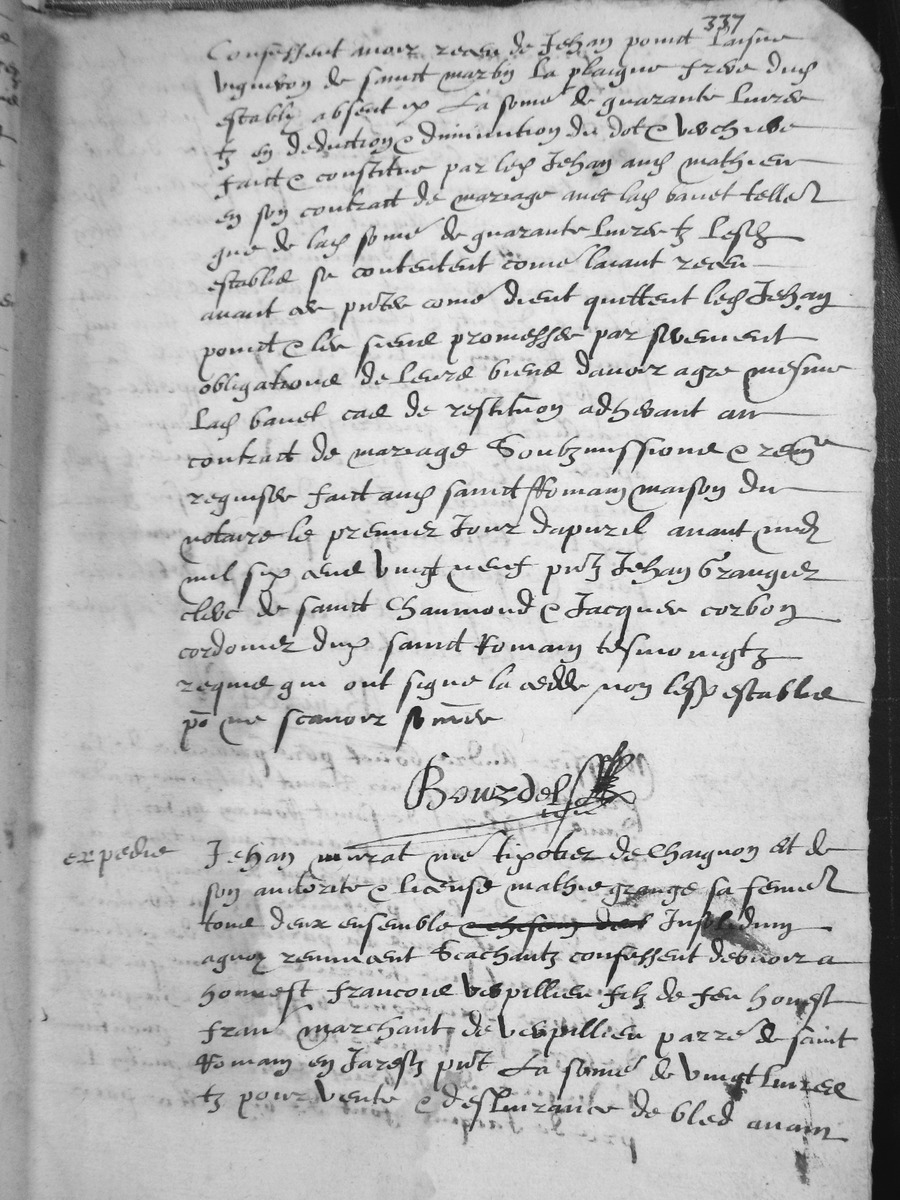 337
Confessent avoir receu de Jehan poinct Laisne
vigneron de sainct martin la plaigne frere dud
estably absent La some de quarante livres
tz en deduction & diminution du dot & verchiere
faict & constitue par led Jehan aud mathieu
en son contract de mariage avec lad bavet telle
que de lad some de quarante livres tz Lesd
establis se contentent come layant receu
avant ces pntes come dient quittent led Jehan
poinct & les siens promesses par serement
obligations de leurs biens davoir agre mesme
lad bavet cas de restitution adhevant au
contract de mariage Soubzmissions & ren
requises faict aud sainct Romain maison du
notaire le premier Jour dapvril avant midy
mil six cens vingt neuf pntz Jehan Grangier
clerc de sainct Chaumond & Jacques corbon
cordonier dud sainct Romain tesmoingtz
requis qui ont signe la cedde non lesd establis
po ne scavoir
Bourdel
expedie
Jehan murat me de Chaignon et de
son autorite & license mathie grange sa femme
tous deux ensemble Insolidum
aquoy renuncent Scachantz confessent debvoir a
honnest francois verpillieu filz de feu honest
marchant de verpillieu parre de sainct
Romain en Jarestz pnt La some de vingt livres
tz pour vente & deslivrance de bled avant